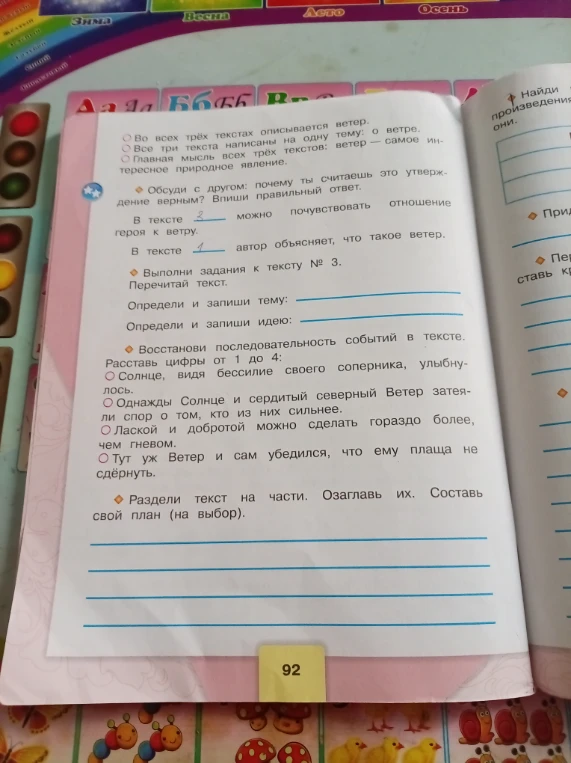 Зима
Весна
Лето
Осень
Аа Бб Вв
Во всех трёх текстах описывается ветер.
Все три текста написаны на одну тему: о ветре.
Главная мысль всех трёх текстов: ветер — самое ин-
тересное природное явление.
Обсуди с другом: почему ты считаешь это утверж-
дение верным? Впиши правильный ответ.
В тексте 2 можно почувствовать отношение
героя к ветру.
В тексте 1 автор объясняет, что такое ветер.
Выполни задания к тексту № 3.
Перечитай текст.
Определи и запиши тему:
Определи и запиши идею:
Восстанови последовательность событий в тексте.
Расставь цифры от 1 до 4:
Солнце, видя бессилие своего соперника, улыбну-
лось.
Однажды Солнце и сердитый северный Ветер затея-
ли спор о том, кто из них сильнее.
Лаской и добротой можно сделать гораздо более,
чем гневом.
Тут уж Ветер и сам убедился, что ему плаща не
сдёрнуть.
Раздели текст на части. Озаглавь их. Составь
свой план (на выбор).
92
Найди
произведения
они.